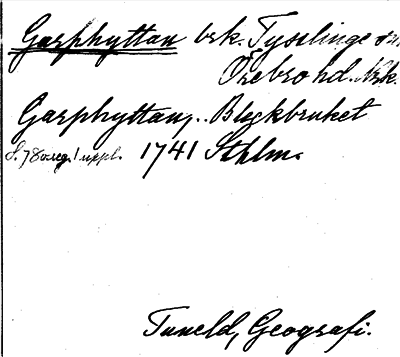 Garphyttan brk. Tysslinge sn.
Örebro hd. Nrk.
Garphyttan, .. Bleckbruket
1741 Sthlm.
Tuneld, Geografi.